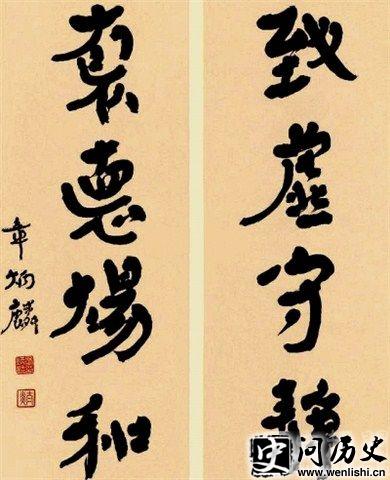 致虛守靜
袌悳煬和
章炳麟
问历史
www.wenlishi.cn